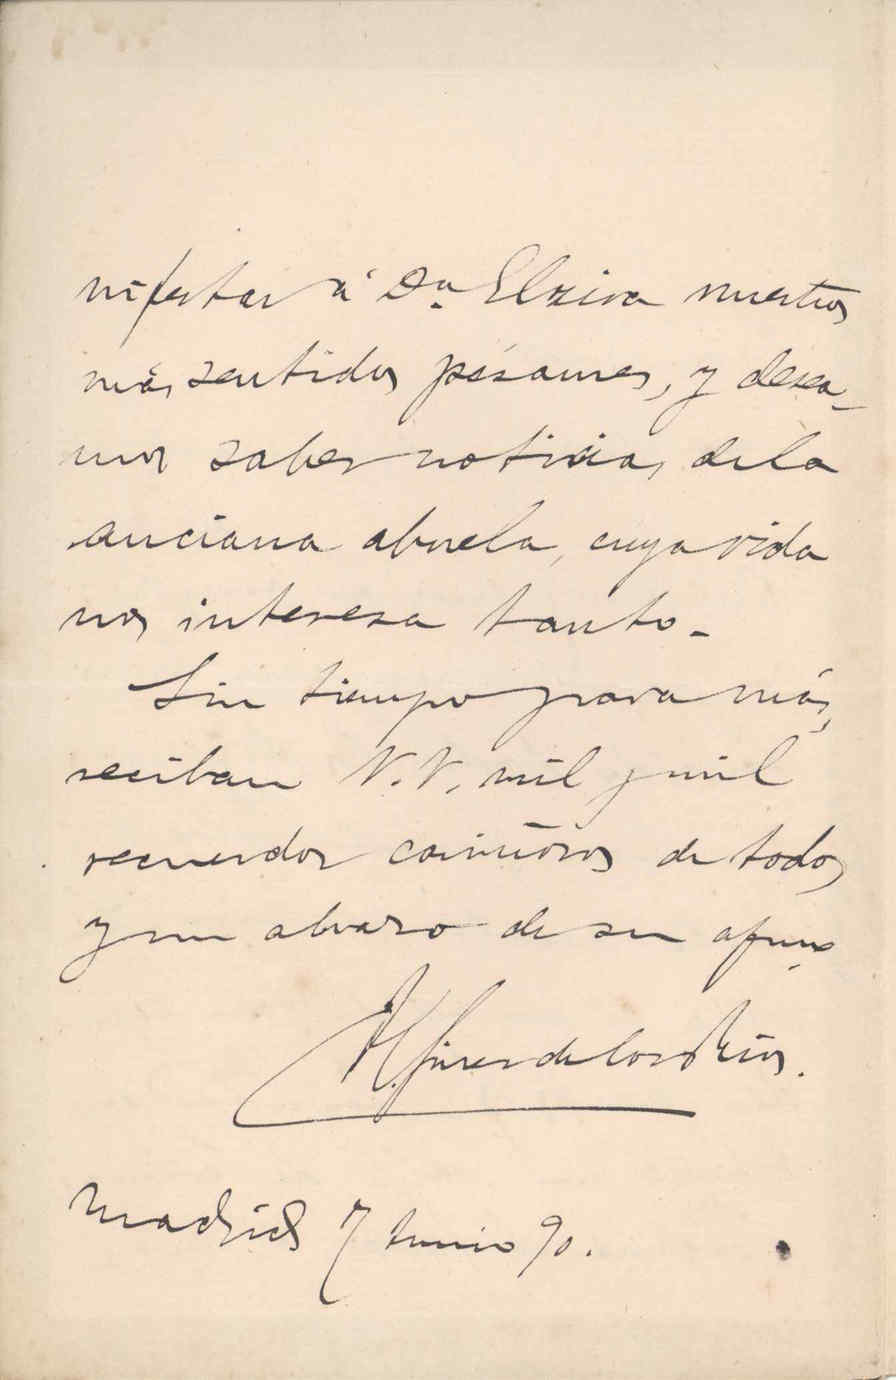 nifestar á Dª Elzira nuestros
más sentidos pésames, y desea-
mos saber noticias de la
anciana abuela, cuya vida
nos interesa tanto.
Sin tiempo para más,
reciban V.V. mil y mil
recuerdos cariñosos de todos
y un abrazo de su afmo
H. Giner de los Ríos.
Madrid 7 Junio 90.